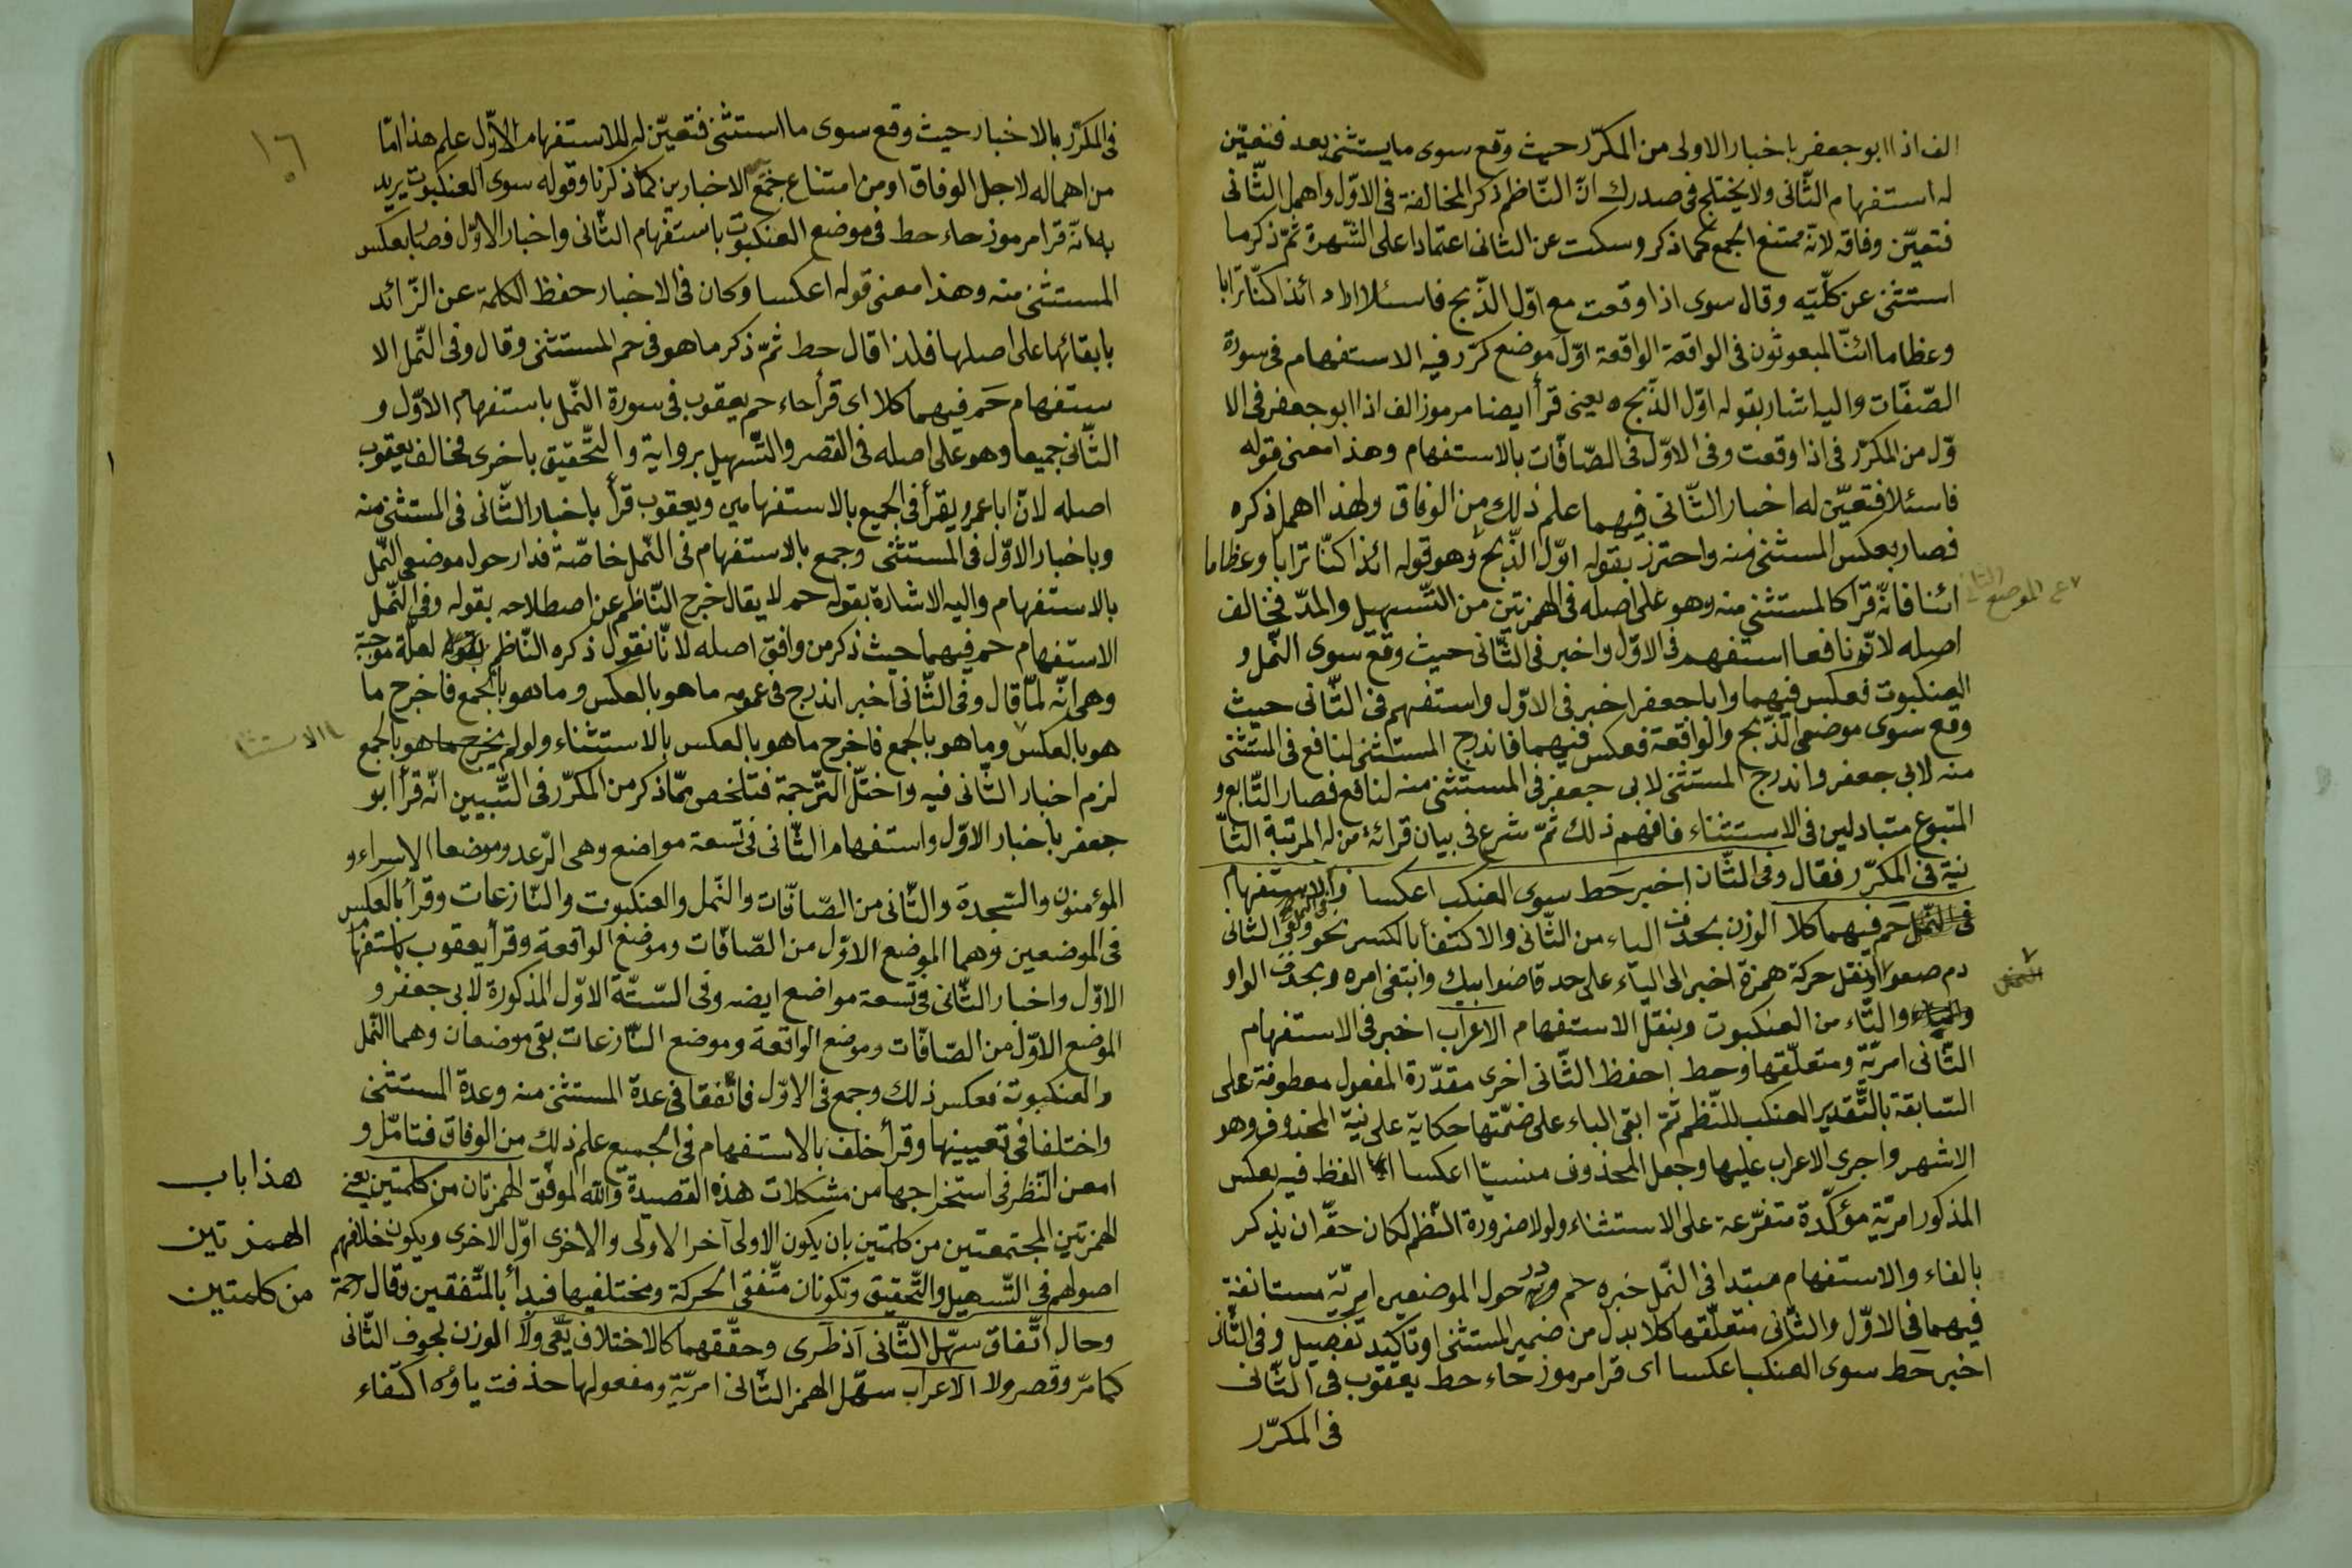 الف اذا ابو جعفر باخبار الاولى من المكرّر حيث وقع سوى ما يستثنى بعد فتعيّن
له استفهام الثّانى ولا يختلج فى صدرك انّ النّاظم ذكر المخالفة فى الاوّل واهمل الثّانى
فتعيّن وفاقه لانّه ممتنع الجمع كما ذكر وسكت عن الثانى اعتمادا على الشّهرة ثمّ ذكر ما
استثنى عن كلّيته وقال سوى اذا وقعت مع اوّل الذّبح فاسئلا اراد ائذا كنّا ترابا
وعظاما ائنّا لمبعوثون فى الواقعة الواقعة اوّل موضع كرّر فيه الاستفهام فى سورة
الصّفّات واليه اشار بقوله اوّل الذّبح يعنى قرأ ايضا مرموز الف اذا ابو جعفر فى الا
وّل من المكرّر فى اذا وقعت وفى الاوّل فى الصّافّات بالاستفهام وهذا معنى قوله
فاسئلا فتعيّن له اخبار الثّانى فيهما علم ذلك من الوفاق ولهذا اهمل ذكره
فصار بعكس المستثنى منه واحترز بقوله اوّل الذّبح وهو قوله ائذا كنّا ترابا وعظاما
ع الموضع الثانى
ائنا فانّه قرأ كالمستثنى منه وهو على اصله فى الهمزتين من التّسهيل والمدّ فخالف
اصله لانّ نافعا استفهم فى الاوّل واخبر فى الثّانى حيث وقع سوى النّمل و
العنكبوت فعكس فيهما وابا جعفر اخبر فى الاوّل واستفهم فى الثّانى حيث
وقع سوى موضعى الذّبح والواقعة فعكس فيهما فاندرج المستثنى لنافع فى المستثنى
منه لابى جعفر واندرج المستثنى لابى جعفر فى المستثنى منه لنافع فصار التّابع و
المتبوع متبادلين فى الاستثناء فافهم ذلك ثمّ شرع فى بيان قرائة من له المرتبة الثّا
نية فى المكرّر فقال وفى الثّان اخبر حط سوى العنكب اعكسا وفى النمل الاستفهام
فى النّمل حم فيهما كلا الوزن بحذف الياء من الثّانى والاكتفا بالكسر نحو وفى الثانى
دم صعوا ونقل حركة همزة اخبر الى الياء على حد قاضو ابيك وانتفى امره وبحذف الواو
والتّاء من العنكبوت وبنقل الاستفهام الاعراب اخبر فى الاستفهام
الثّانى امريّة ومتعلّقها وحط احفظ الثّانى اخرى مقدّرة المفعول معطوفة على
السّابقة بالتّقدير العنكب للنّظم ثمّ ابقى الباء على ضمّتها حكاية على نيّة المحذوف وهو
الاشهر واجرى الاعراب عليها وجعل المحذوف منسيّا اعكسا اللفظ فيه بعكس
المذكور امريّة مؤكّدة متفرّعة على الاستثناء ولولا ضرورة النّظم لكان حقّه ان يذكر
بالفاء والاستفهام مبتدا فى النّمل خبره حم حول الموضعين امريّة مستانفة
فيهما فى الاوّل والثّانى متعلّقها كلا بدل من ضمير المستثنى او تأكيد تفصيل وفى الثّانى
اخبر حط سوى العنكب اعكسا اى قرا مرموز حاء حط يعقوب فى الثّانى
فى المكرّر
١٠٦
فى المكرّر بالاخبار حيث وقع سوى ما استثنى فتعيّن له الاستفهام الاوّل علم هذا امّا
من اهماله لاجل الوفاق او من امتناع جمع الاخبارين كما ذكرنا وقوله سوى العنكبوت يريد
به انّه قرا مرموز حاء حط فى موضع العنكبوت باستفهام الثّانى واخبار الاوّل فصار بعكس
المستثنى منه وهذا معنى قوله اعكسا وكان فى الاخبار حفظ الكلمة عن الزّائد
بابقائها على اصلها فلذا قال حط ثمّ ذكر ما هو فى حم المستثنى وقال وفى النّمل الا
ستفهام حم فيهما كلا اى قرأ حاء حم يعقوب فى سورة النّمل باستفهام الاوّل و
الثّانى جميعا وهو على اصله فى القصر والتّسهيل برواية والتّحقيق باخرى فخالف يعقوب
اصله لانّ ابا عمرو يقرأ فى الجميع بالاستفهامين ويعقوب قرأ باخبار الثّانى فى المستثنى منه
وباخبار الاوّل فى المستثنى وجمع بالاستفهام فى النّمل خاصّة فدار حول موضعى النّمل
بالاستفهام واليه الاشارة بقوله حم لا يقال خرج النّاظم عن اصطلاحه بقوله وفى النّمل
الاستفهام حم فيهما حيث ذكر من وافق اصله لانّا نقول ذكره النّاظم لعلّة موجبة
وهى انّه لمّا قال وفى الثّانى اخبر اندرج فى عمومه ما هو بالعكس وما هو بالجمع فاخرج ما
هو بالعكس وما هو بالجمع فاخرج ما هو بالعكس بالاستثناء ولو لم يخرج ما هو بالجمع
بالاستثنا
لزم اخبار الثّانى فيه واختلّ التّرجمة فتلخص ممّا ذكر من المكرّر فى التّبيين انّه قرأ ابو
جعفر باخبار الاوّل واستفهام الثّانى فى تسعة مواضع وهى الرّعد وموضعا الاسراء و
المؤمنون والسّجدة والثّانى من الصّافّات والنّمل والعنكبوت والنّازعات وقرأ بالعكس
فى الموضعين وهما الموضع الاوّل من الصّافّات وموضع الواقعة وقرأ يعقوب باستفهام
الاوّل واخبار الثّانى فى تسعة مواضع ايضه وفى السّتّة الاوّل المذكورة لابى جعفر و
الموضع الاوّل من الصّافّات وموضع الواقعة وموضع النّازعات بقى موضعان وهما النّمل
والعنكبوت فعكس ذلك وجمع فى الاوّل فاتّفقا فى عدة المستثنى منه وعدة المستثنى
واختلفا فى تعيينها وقرأ خلف بالاستفهام فى الجميع علم ذلك من الوفاق فتامّل و
امعن النّظر فى استخراجها من مشكلات هذه القصيدة واللّه الموفّق الهمزتان من كلمتين يعنى
الهمزتين المجتمعتين من كلمتين بان يكون الاولى آخر الاولى والاخرى اوّل الاخرى ويكون خلافهم
اصولهم فى التّسهيل والتّحقيق وتكونان متّفقى الحركة ومختلفيها فبدأ بالمتّفقين وقال رحمة
هذا باب
الهمزتين
من كلمتين
وحال اتّفاق سهّل الثّانى اذ طرى وحقّقهما كالاختلاف يعى ولا الوزن لجوف الثّانى
كما مرّ وقصر ولا الاعراب سهّل الهمز الثّانى امريّة ومفعولها حذفت ياؤه اكتفاء